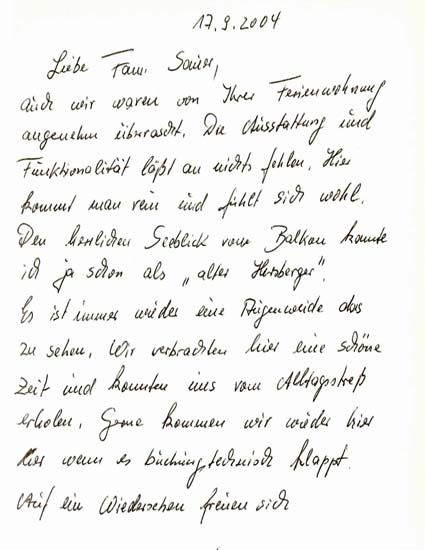 17.9.2004
Liebe Fam. Sauer,
auch wir waren von Ihrer Ferienwohnung
angenehm überrascht. Die Ausstattung und
Funktionalität läßt an nichts fehlen. Hier
kommt man rein und fühlt sich wohl.
Den herrlichen Seeblick vom Balkon kannte
ich ja schon als „alter Hersberger".
Es ist immer wieder eine Augenweide das
zu sehen. Wir verbrachten hier eine schöne
Zeit und konnten uns vom Alltagsstreß
erholen. Gerne kommen wir wieder hier
her wenn es buchungstechnisch klappt.
Auf ein Wiedersehen freuen sich